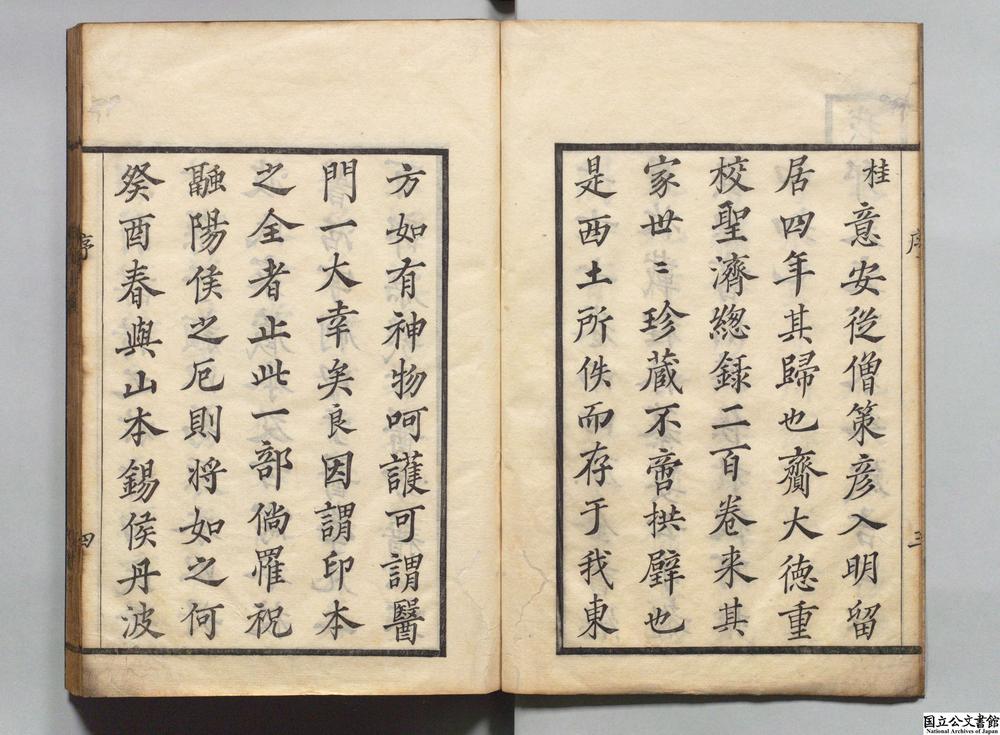 桂意安從僧策彦入明留
居四年其歸也齎大德重
校聖濟緫録二百卷来其
家世〻珍蔵不啻拱璧也
是西土所佚而存于我東
序
三
方如有神物呵護可謂醫
門一大幸矣良因謂印本
之全者止此一部倘罹祝
融陽侯之厄則将如之何
癸酉春與山本錫侯丹波
序
四
国立公文書館
National Archives of Japan